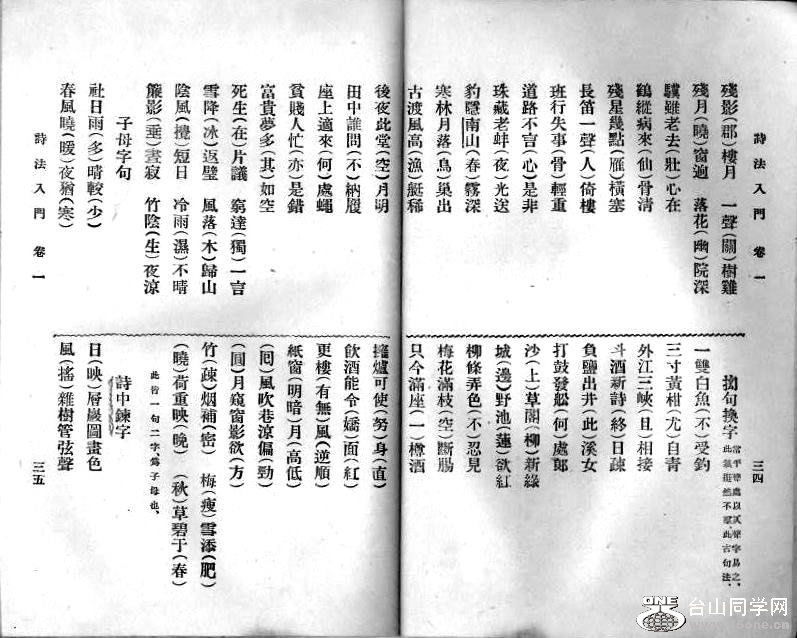 詩法入門 卷一
三四
殘影(郡)樓月 一聲(關)樹雞
殘月(曉)窗迥 落花(幽)院深
驥雖老去(壯)心在
鶴縱病來(仙)骨清
殘星幾點(雁)橫塞
長笛一聲(人)倚樓
班行失事(骨)輕重
道路不言(心)是非
珠藏老蚌(夜)光送
豹隱南山(春)霧深
寒林月落(鳥)巢出
古渡風高(漁)艇稀
拗句換字
當平聲處以仄聲字易之、
此氣挺然不群、此古句法、
一雙白魚(不)受釣
三寸黃柑(尤)自青
外江三峽(且)相接
斗酒新詩(終)日疎
負鹽出井(此)溪女
打鼓發船(何)處郎
沙(上)草閣(柳)新綠
城(邊)野池(蓮)欲紅
柳條弄色(不)忍見
梅花滿枝(空)斷腸
只今滿座(一)樽酒
後夜此堂(空)月明
田中誰問(不)納履
座上適來(何)處蠅
貧賤人忙(亦)是錯
富貴夢多(其)如空
死生(在)片議 窮達(獨)一言
雪降(冰)返壁 風落(木)歸山
陰風(捲)短日 冷雨(濕)不晴
簾影(垂)晝寂 竹陰(生)夜涼
子母字句
社日雨(多)晴較(少)
春風曉(暖)夜猶(寒)
擁爐可使(努)身(直)
飲酒能令(嬌)面(紅)
更樓(有無)風(逆順)
紙窗(明暗)月(高低)
(囘)風吹巷涼偏(勁)
(圓)月窺窗影欲(方)
竹(疎)烟補(密) 梅(瘦)雪添(肥)
(曉)荷重映(晚) (秋)草碧于(春)
此皆一句二字、爲子母也、
詩中鍊字
日(映)層巖圖畫色
風(搖)雜樹管弦聲
詩法入門 卷一
三五
ONE
台山同学网